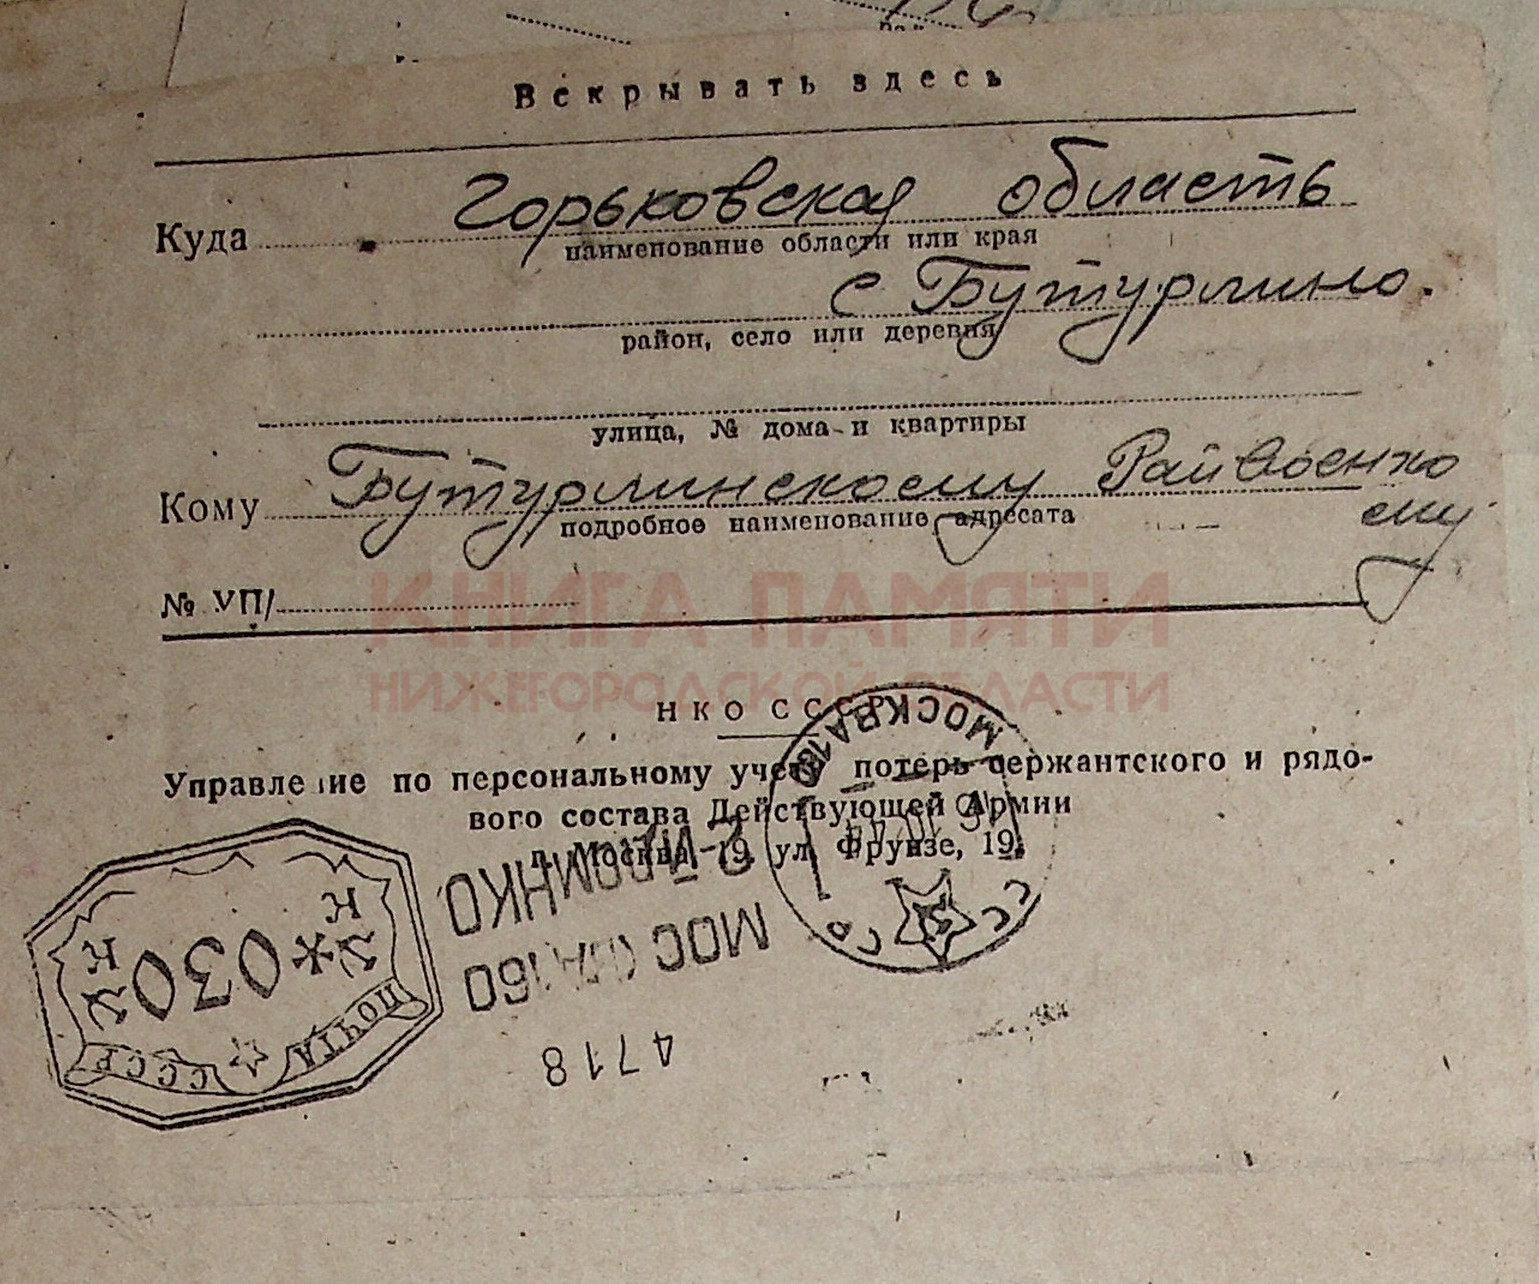 Вскрывать здесь
Куда Горьковская область
наименование области или края
с Бутурлино.
район, село или деревня
улица, № дома и квартиры
Кому Бутурлинскому Райвоенко
подробное наименование адресата
ему
№ УП/
КНИГА ПАМЯТИ
НИЖЕГОРОДСКОЙ ОБЛАСТИ
НКО СССР
МОСКВА
Управление по персональному учету потерь сержантского и рядо-
вого состава Действующей Армии
г. Москва-19, ул. Фрунзе, 19.
СССР
030
К К
ПОЧТА
СССР
4718